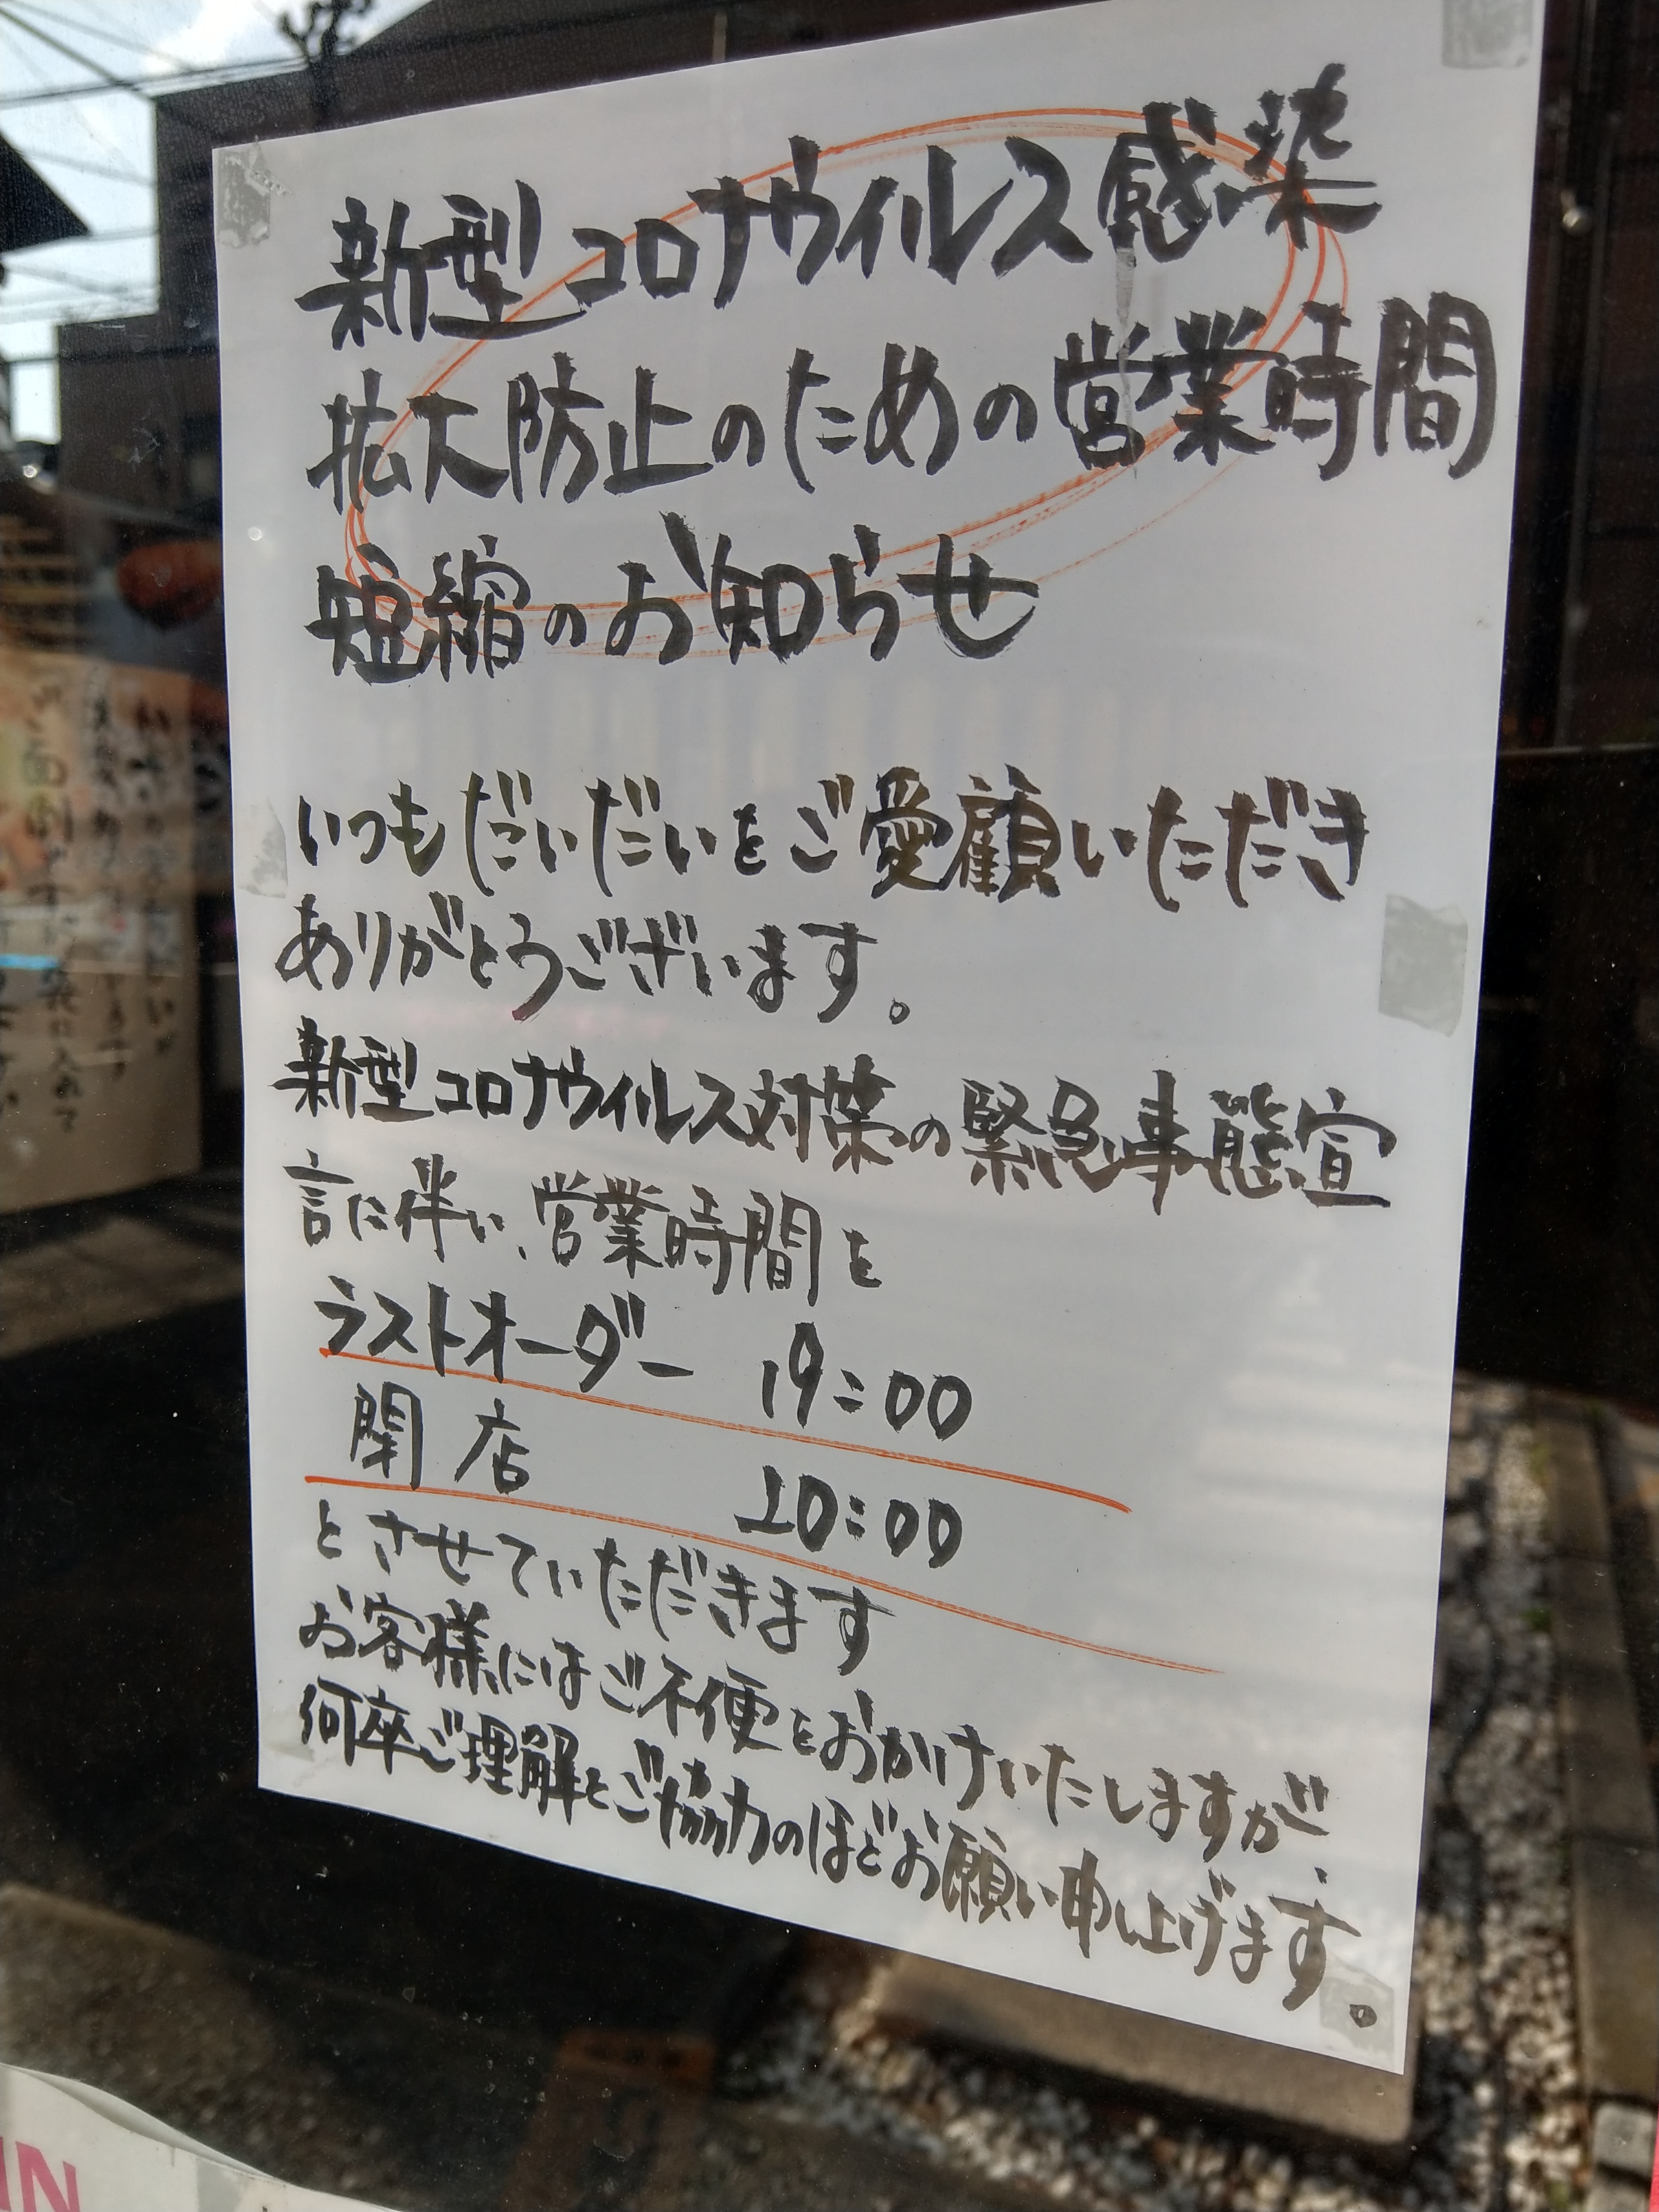 新型コロナウィルス感染
拡大防止のための営業時間
短縮のお知らせ
いつもだいだいをご愛顧いただき
ありがとうございます。
新型コロナウィルス対策の緊急事態宣
言に伴い、営業時間を
ラストオーダー 19:00
閉店 20:00
とさせていただきます
お客様にはご不便をおかけいたしますが、
何卒ご理解とご協力のほどお願い申し上げます。
IN